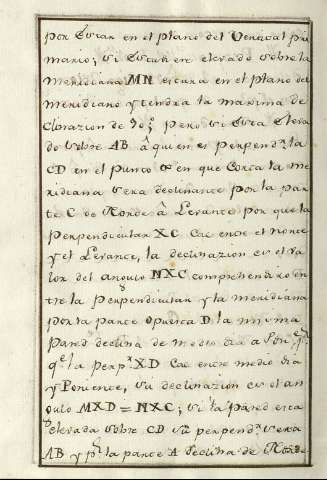 por estar en el plano del Vertical Pri
mario; si estubiere elevado sobre la
Meridiana MN estara en el plano del
meridiano y tendra la maxima de
clinazion de 90.º pero si esta eleva
do sobre AB â quien es perpend.r la
CD en el punto en que corta la me
ridiana sera declinante por la par
te C de Norte â Levante por que la
perpendicular XC cae entre el norte
y el Levante, la declinazion es el va
lor del angulo NXC comprehendido en
tre la perpendicular y la meridiana
por la parte opuesta D la misma
pared declina de medio dia a Pon.te p.r
q.e la perp.r XD cae entre medio dia
y Poniente, su declinazion es el an
gulo MXD = NXC; si la pared esta
elevada sobre CD su perpend.r sera
AB y p.r la parte A declina de Norte